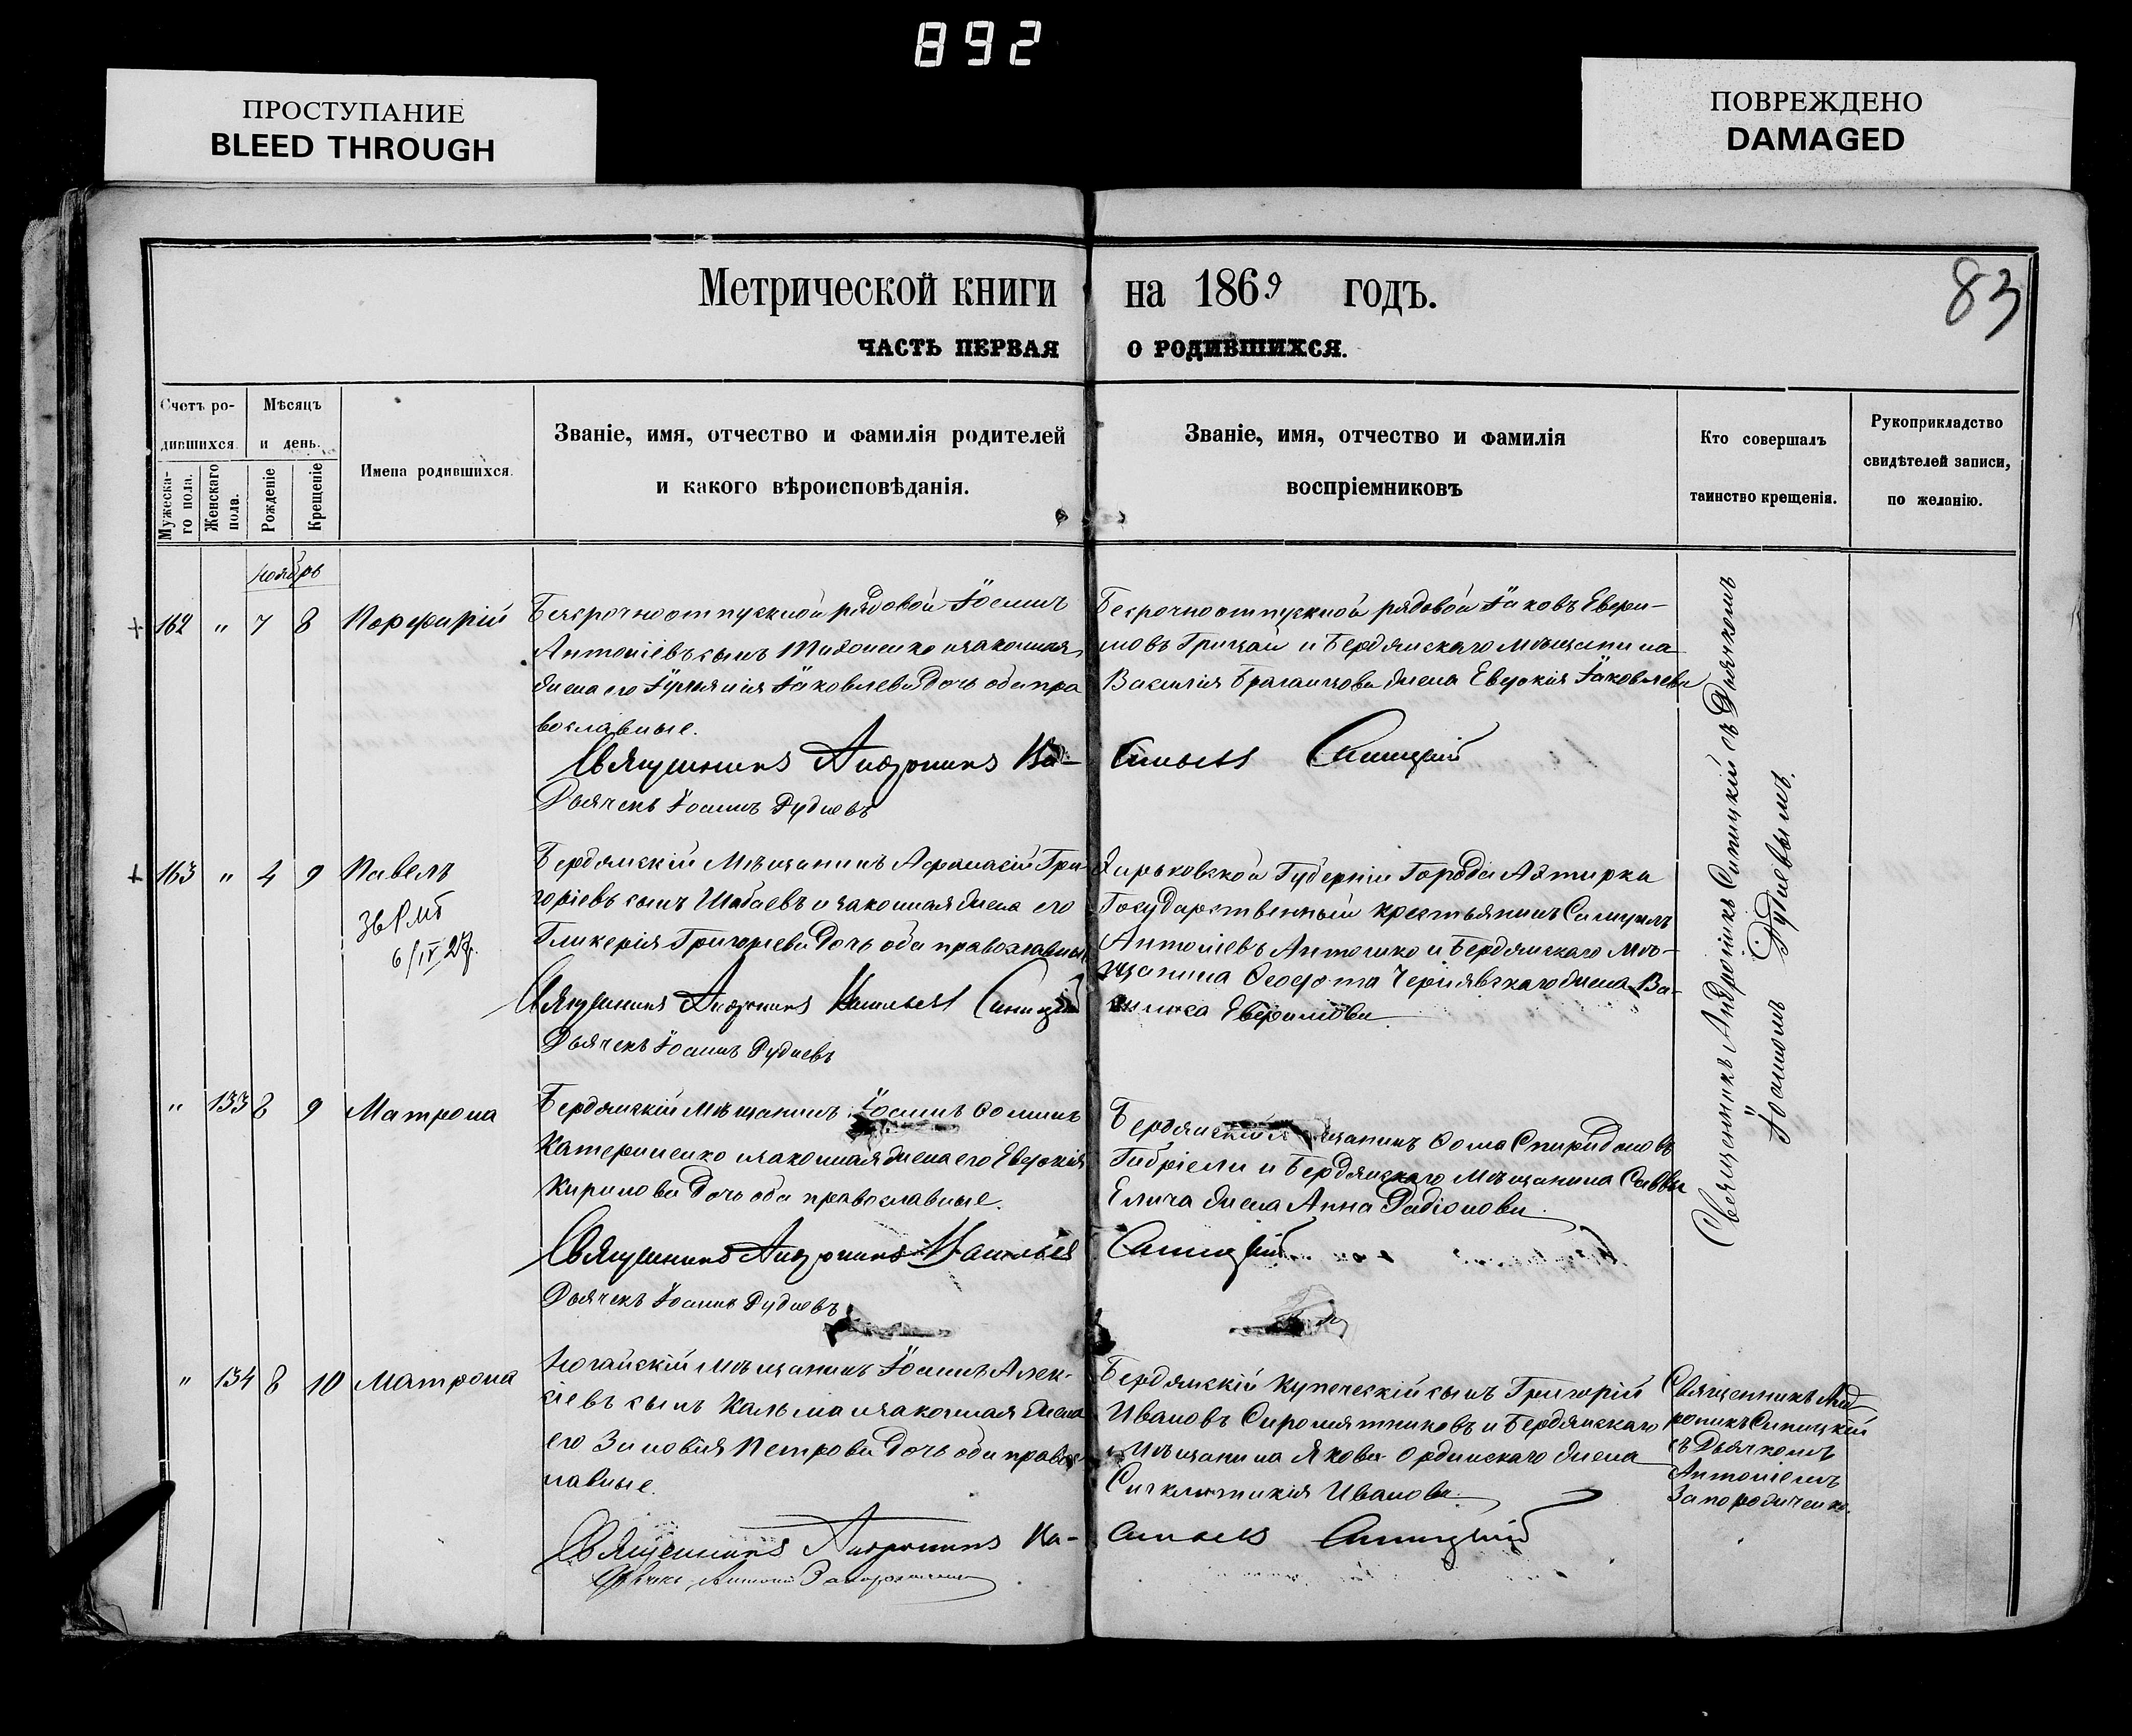 892
ПРОСТУПАНИЕ
BLEED THROUGH
ПОВРЕЖДЕНО
DAMAGED
Метрической книги на 1869 годъ.
83
ЧАСТЬ ПЕРВАЯ О РОДИВШИХСЯ.
Счетъ ро-
дившихся.
Мужеска-
го пола.
Женскаго
пола.
Мѣсяцъ
и день.
Рожденіе
Крещеніе
Имена родившихся.
Званіе, имя, отчество и фамилія родителей
и какого вѣроисповѣданія.
Званіе, имя, отчество и фамилія
воспріемниковъ
Кто совершалъ
таинство крещенія.
Рукоприкладство
свидѣтелей записи,
по желанію.
ноябрь
+ 162 " 7 8 Порфирій
Безсрочноотпускной рядовой Іоаннъ
Антоніевъ сынъ Тихоненко и законная
жена его Іуліянія Іаковлева дочь оба пра
вославные.
Священникъ Андроникъ Ва-
Дьячекъ Іоаннъ Дудиевъ
Безсрочноотпускной рядовой Іаковъ Ефри-
мовъ Грицай и Бердянскаго мѣщанина
Василія Браганцова жена Евфокія Іаковлева
сильевъ Синицкій
+ 163 " 4 9 Павелъ
6/IV 27.
Бердянскій Мѣщанинъ Афанасій Гри-
горіевъ сынъ Шабаевъ и законная жена его
Гликерія Григорьева дочь оба православные
Священникъ Андроникъ Васильевъ Синицкій
Дьячекъ Іоаннъ Дудиевъ
Харьковской Губерніи Города Ахтирки
Государственный крестьянинъ Самуилъ
Антоніевъ Антошко и Бердянскаго Мѣ-
щанина Феодота Чернявскаго жена Ва-
силиса Ефримова
" 133 8 9 Матрона
Бердянскій Мѣщанинъ Іоаннъ Фоминъ
Катериненко и законная жена его Евфокія
Кирилова дочь оба православные.
Священникъ Андроникъ Васильевъ
Дьячекъ Іоаннъ Дудиевъ
Бердянскій щанинъ Фома Спиридоновъ
Габріели и Бердянскаго Мѣщанина Саввы
Елича жена Анна Радіонова
Синицкій
Священникъ Андроникъ Синицкій съ Дьячкомъ
Іоанномъ Дудиевымъ.
" 134 8 10 Матрона
Ногайскій Мѣщанинъ Іоаннъ Алек-
сіевъ сынъ Кальма и законная жена
его Зиновія Петрова дочь оба правос-
лавные.
Священникъ Андроникъ Ва-
Дьячекъ Антоній
Бердянскій Купеческій сынъ Григорій
Ивановъ Сиромятниковъ и Бердянскаго
Мѣщанина Якова Ординскаго жена
Синклитикія Иванова
сильевъ Синицкій
Священникъ Анд-
роникъ Синицкій
съ Дьячкомъ
Антоніемъ